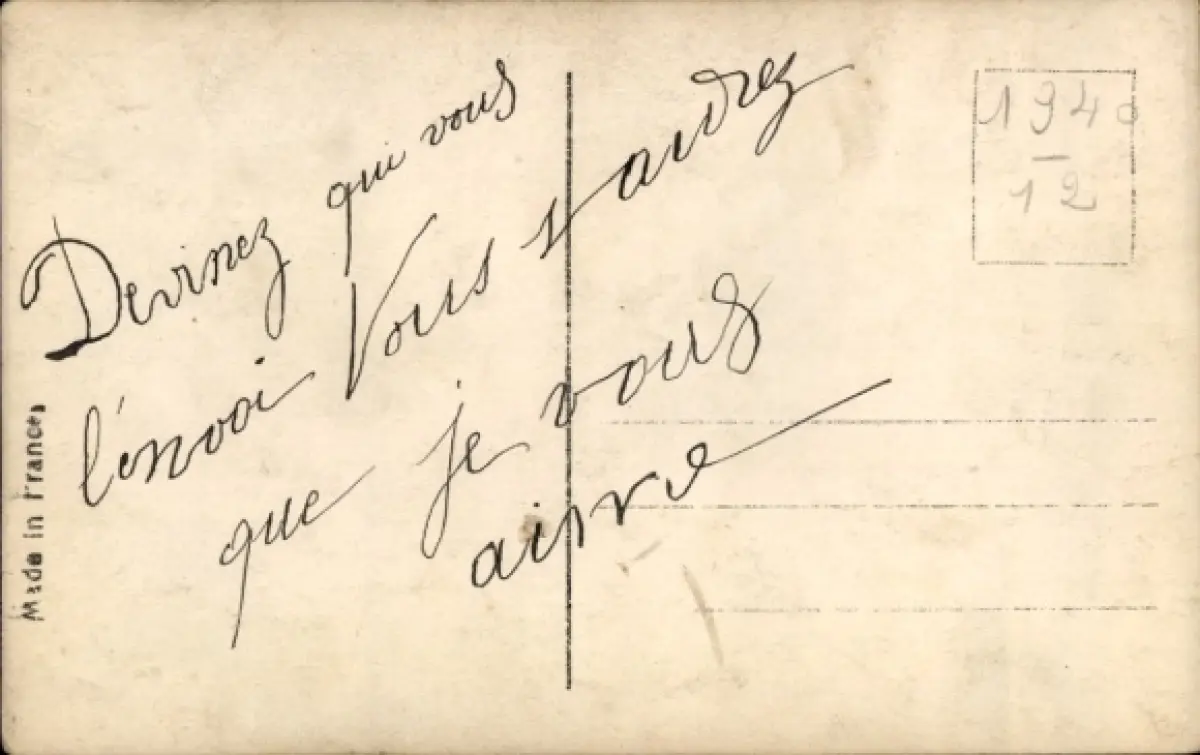 Devinez qui vous
l'envoi Vous saudrez
que je vous
aime
1940
12
Made in France